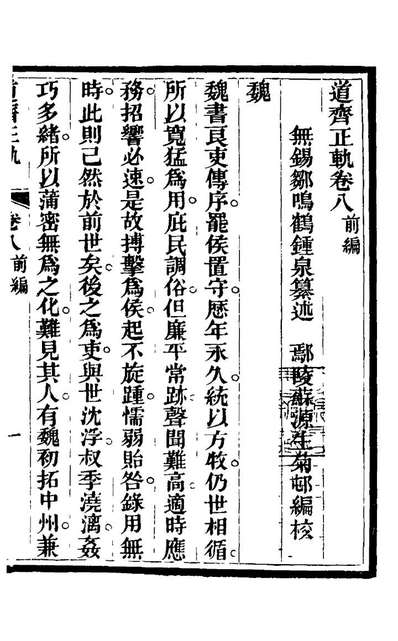 道齊正軌卷八前編
無錫鄒鳴鶴鍾泉纂述 鄢陵蘇源生菊邨編校
魏
魏書良吏傳序罷侯置守歷年永久統以方牧仍世相循
所以寬猛爲用庇民調俗但廉平常跡聲問難高適時應
務招響必速是故搏擊爲侯起不旋踵懦弱貽咎錄用無
時此則已然於前世矣後之爲吏與世沈浮叔季澆漓姦
巧多緒所以蒲密無爲之化難見其人有魏初拓中州兼
道齊正軌 卷八前編 一